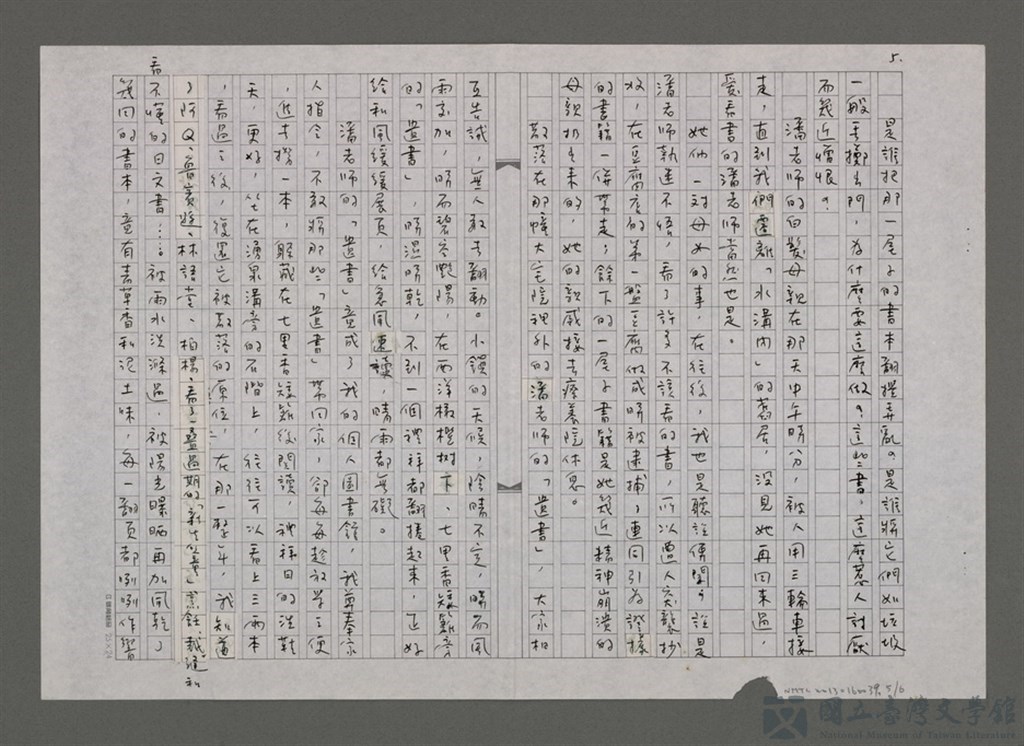 5.
是誰把那一屋子的書本翻攪弄亂？是誰將它們如垃圾
一般丟擲出門，為什麼要這麼做？這些書，這麼惹人討厭
而幾近憎恨？
潘老師的白髮母親在那天中午時分，被人用三輪車接
走，直到我們遷離「水溝內」的舊居，沒見她再回來過，
愛看書的潘老師當然也是。
她倆一對母女的事，在往後，我也是聽說傳聞？說是
潘老師執迷不悟，看了許多不該看的書，所以遭人突襲抄
收，在豆腐店的第一盤豆腐做成時被逮捕，連同引為證據
的書籍一併帶走；餘下的一屋子書籍是她幾近精神崩潰的
母親扔出來的，她的親戚接去療養院休息。
散落在那幢大宅院裡外的潘老師的「遺書」，大家相
互告誡，無人敢去翻動。小鎮的天候，陰晴不定，時而風
雨交加，時而碧空艷陽，在西洋橄欖樹下、七里香矮籬旁
的「遺書」，時濕時乾，不到一個禮拜都翻捲起來，正好
給和風緩緩展頁，給急風速讀，晴雨都無礙。
潘老師的「遺書」竟成了我的個人圖書館，我尊奉家
人指令，不敢將那些「遺書」帶回家，卻每每趁放學之便
，近去撈一本，躲藏在七里香矮籬後閱讀，禮拜日的洗鞋
天，更好，坐在湧泉溝旁的石階上，往往可以看上三兩本
，看過之後，復置它被散落的原位，在那一整年，我知道
了阿Q、魯賓遜、林語堂、柏楊，看了一疊過期的「新生畫
看不懂的日文書……被雨水洗滌過，被陽光曝曬再加風乾了
幾回的書本，竟有著草香和泥土味，每一翻頁都咧咧作響
國立臺灣文學館
National Museum of Taiwan Literature